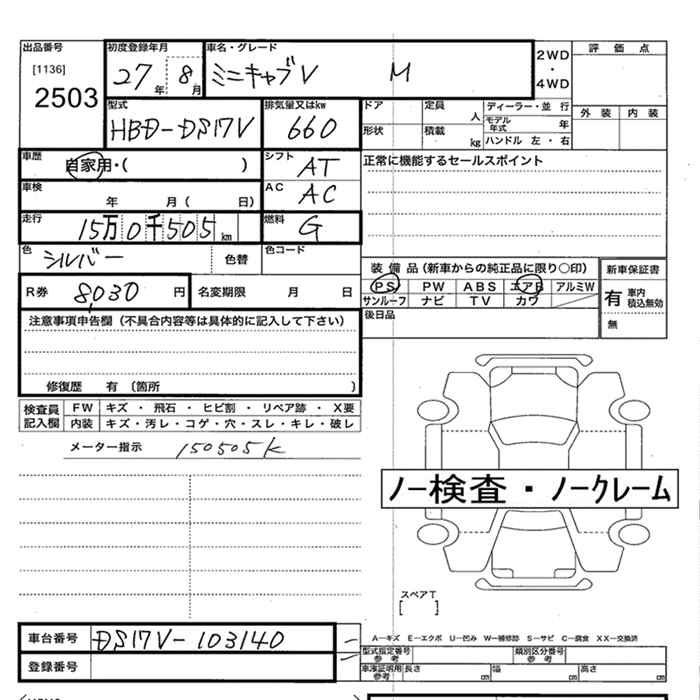 出品番号 [1136] 2503
初度登録年月 27年 8月
車名・グレード ミニキャブV M
2WD・4WD
評価点
外装 内装
型式 HBD-DS17V
排気量又はkw 660
ドア 定員 人
形状 積載 kg
ディーラー・並行
モデル年式 年
ハンドル 左・右
車歴 自家用・( )
シフト AT
正常に機能するセールスポイント
車検 年 月( 日)
AC AC
走行 15万0千505km
燃料 G
色 シルバー 色替 色コード
装備品(新車からの純正品に限り○印)
新車保証書
PS PW ABS エアB アルミW
サンルーフ ナビ TV カワ
有 車内積込無効
無
R券 8,030円 名変期限 月 日
後日品
注意事項申告欄(不具合内容等は具体的に記入して下さい)
修復歴 有〔箇所 〕
検査員記入欄
FW キズ・飛石・ヒビ割・リペア跡・X要
内装 キズ・汚レ・コゲ・穴・スレ・キレ・破レ
メーター指示 150505K
ノー検査・ノークレーム
スペアT
[ ]
車台番号 DS17V-103140
登録番号
A−キズ E−エクボ U−凹み W−補修跡 S−サビ C−腐食 XX−交換済
型式指定番号 参考 類別区分番号 参考
車庫証明用 参考 長さ cm 幅 cm 高さ cm